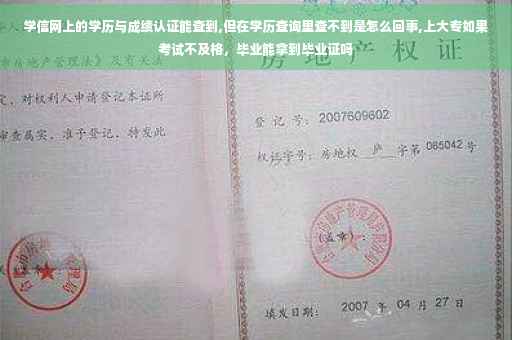 学信网上的学历与成绩认证能查到,但在学历查询里查不到是怎么回事,上大专如果
考试不及格，毕业能拿到毕业证吗
房地产权
管理法》及有关法
对权利人申请登记本证所
审查属实，准予登记，特发此
登 记 号：2007609602
权证字号：房地权 庐 字第 065042 号
(盖章)：
填发日期： 2007 年 04 月 27 日